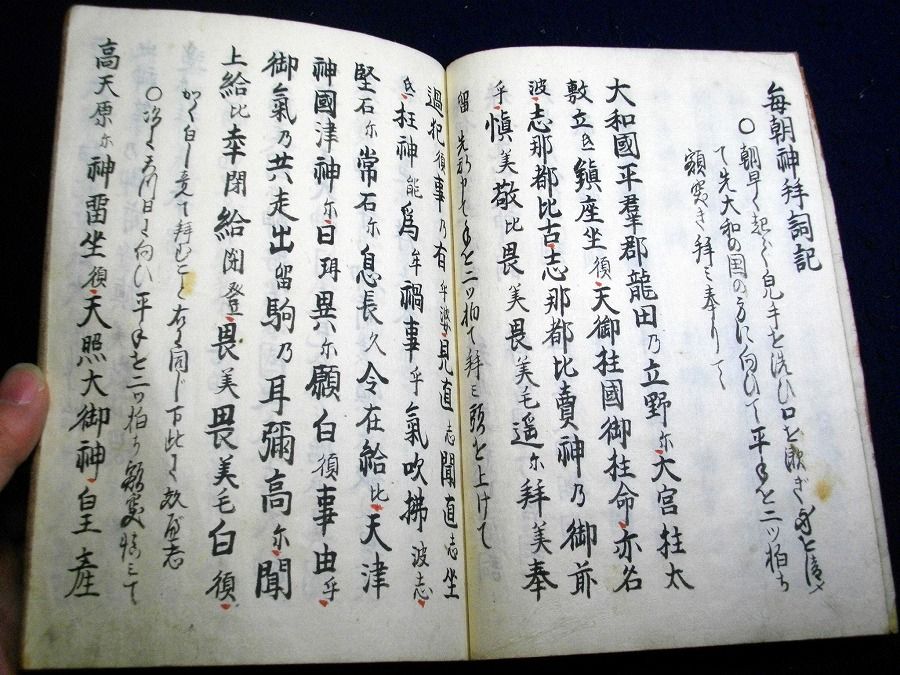 毎朝神拜詞記
○朝早く起て皃手を洗ひ口を漱ぎ身を清め
て先大和の国の方に向ひて平手を二ツ拍ち
額突き拜ミ奉りて
大和國平羣郡龍田乃立野尓大宮拄太
敷立氐鎮座坐須天御拄國御拄命亦名
波志那都比古志那都比賣神乃御前
乎慎美敬比畏美畏美毛遥尓拜美奉
留 て手を二ツ拍て拜ミ頭を上けて
過犯須事乃有乎婆見直志聞直志坐
氐枉神能為牟禍事乎氣吹拂波志
堅石尓常石尓息長久令在給比天津
神國津神尓日珥異尓願白須事由乎
御氣乃共走出留駒乃耳彌高尓聞
上給比幸閇給閇登畏美畏美毛白須
かく白し竟て拜むこと右に同じ下此に效へ
○次に天川日に向ひ平手を二ツ拍ち額突ミて
高天原尓神留坐須天照大御神皇産